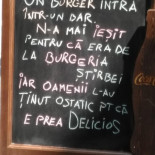 UN BURGER INTRĂ
ÎNTR-UN BAR.
N-A MAI IEȘIT
PENTRU CĂ ERA DE
LA BURGERIA
ȘTIRBEI
IAR OAMENII L-AU
ȚINUT OSTATIC PT CĂ
E PREA DELICIOS